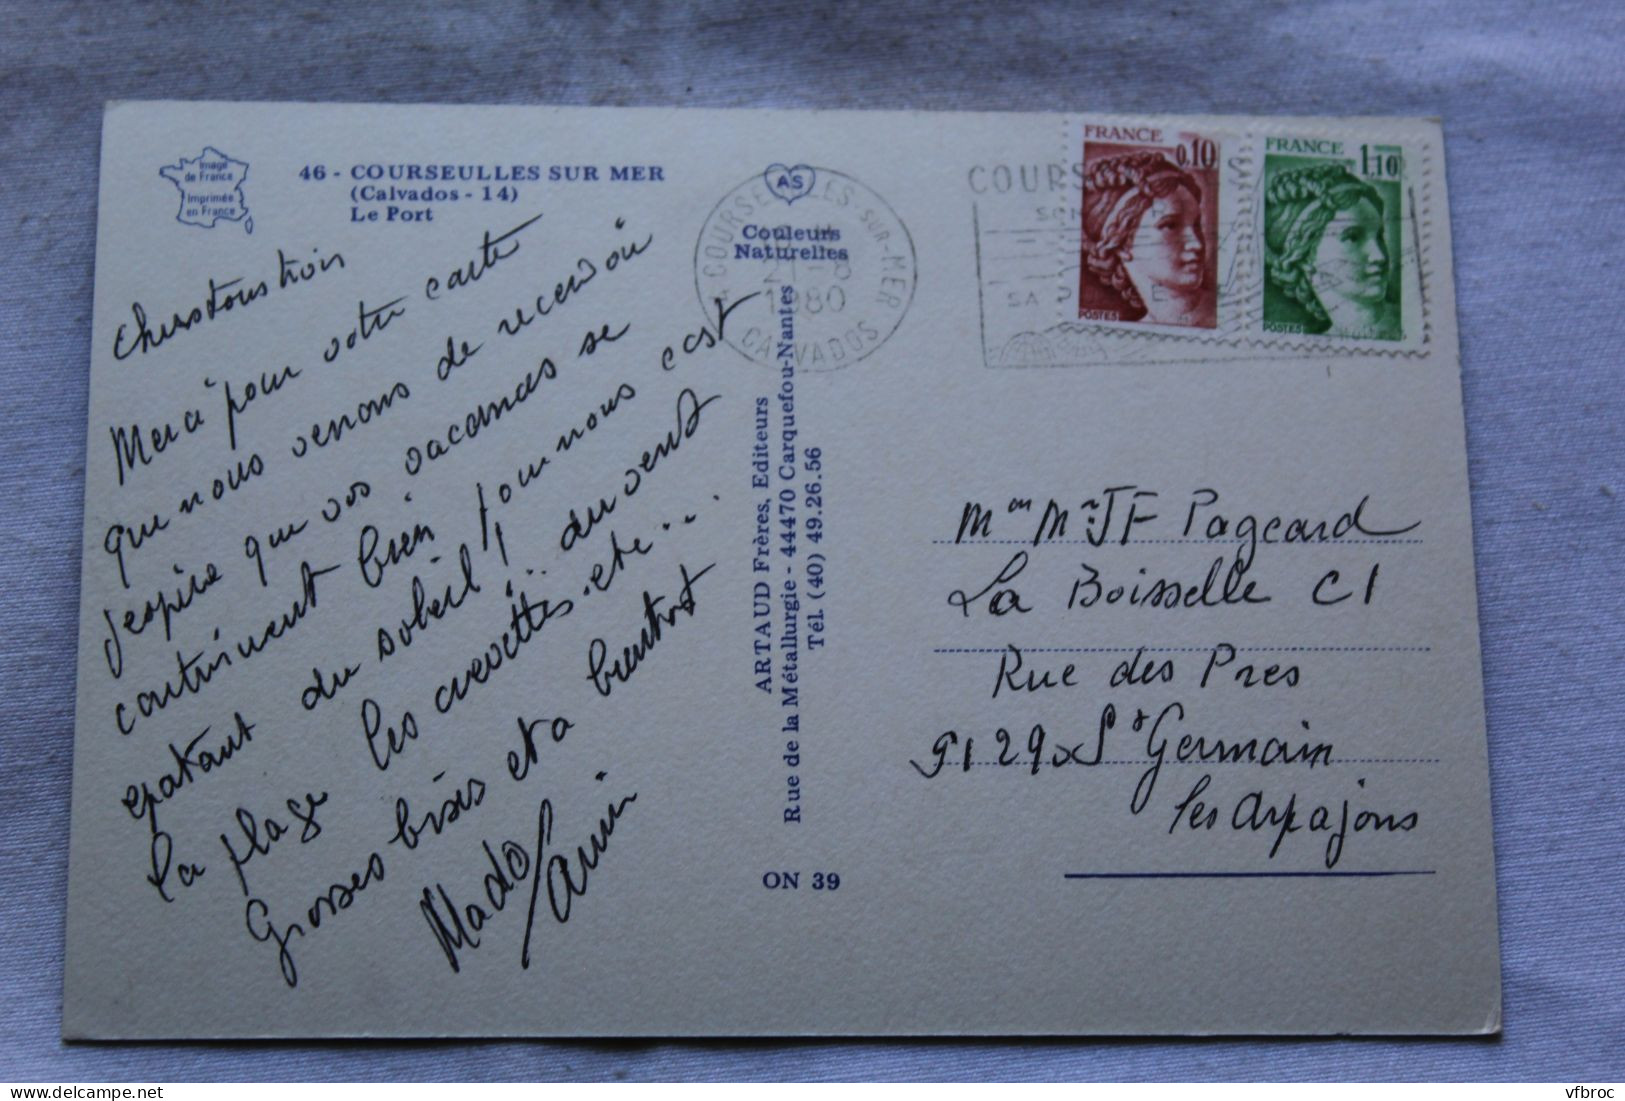 Image
de France
Imprimée
en France
46 - COURSEULLES SUR MER
(Calvados - 14)
Le Port
AS
Couleurs
Naturelles
COURSEULLES-SUR-MER
1980
CALVADOS
COURS
SA
FRANCE
0,10
POSTES
FRANCE
1,10
chers tous trois
Merci pour votre carte
que nous venons de recevoir
j'espère que vos vacances se
continuent bien pour nous c'est
épatant du soleil, du vent
la plage les crevettes. etc...
Grosses bises et a bientot
Mado
ARTAUD Frères, Editeurs
Rue de la Métallurgie - 44470 Carquefou-Nantes
Tél. (40) 49.26.56
ON 39
JF Pageard
La Boisselle C1
Rue des Pres
91290 St Germain
les Arpajons
vfbroc